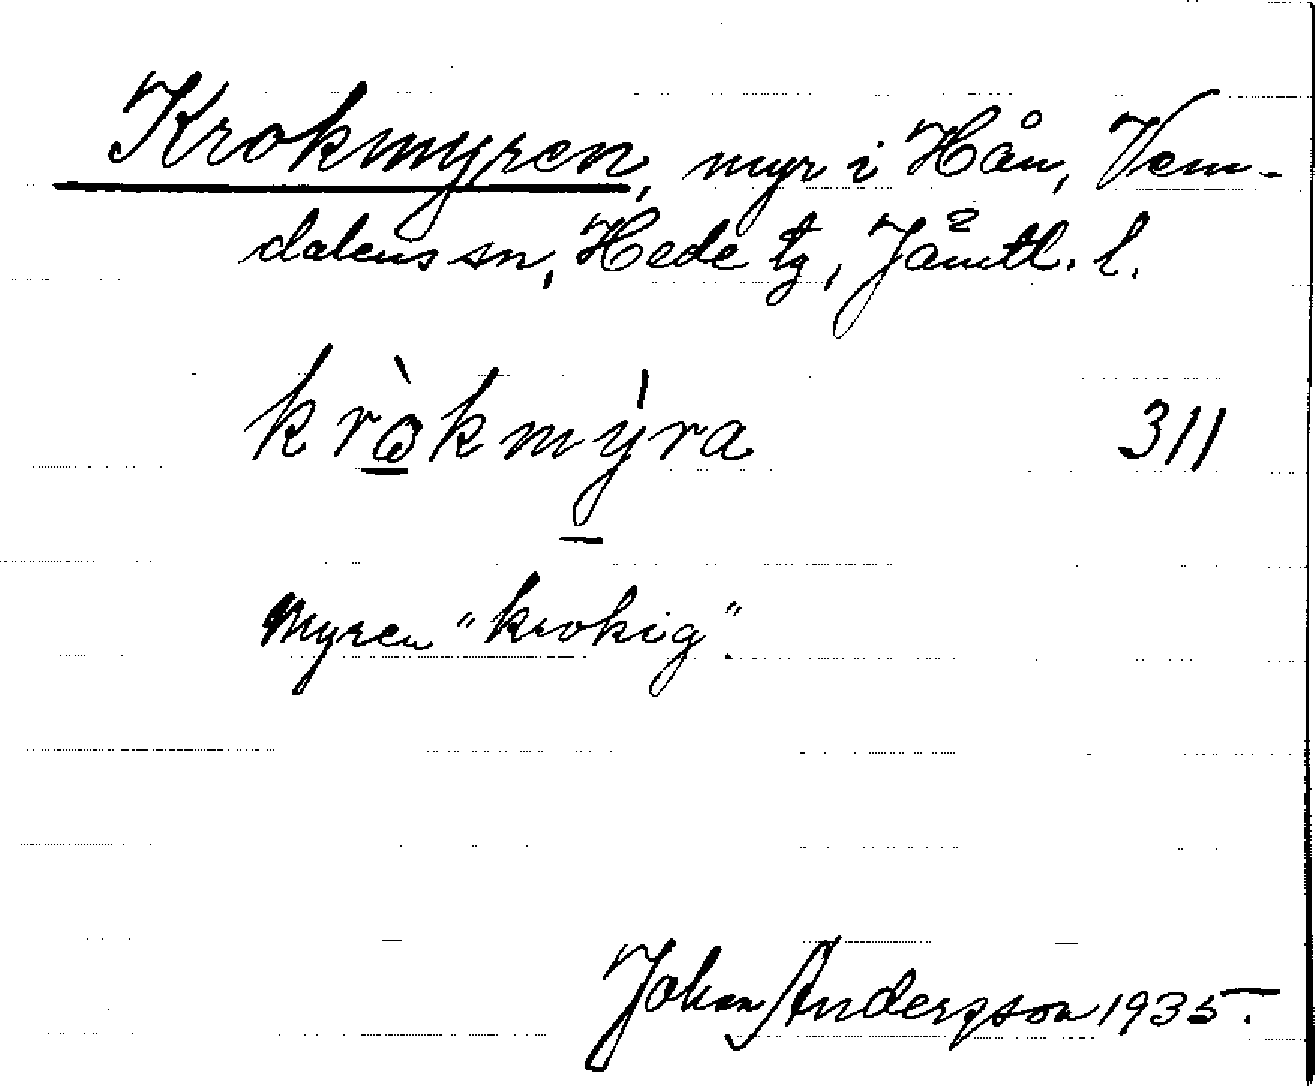 Krokmyren, myr i Hån, Vem-
dalens sn, Hede tg, Jämtl. l.
kròkmýra 311
Myren "krokig".
Johan Andersson 1935.